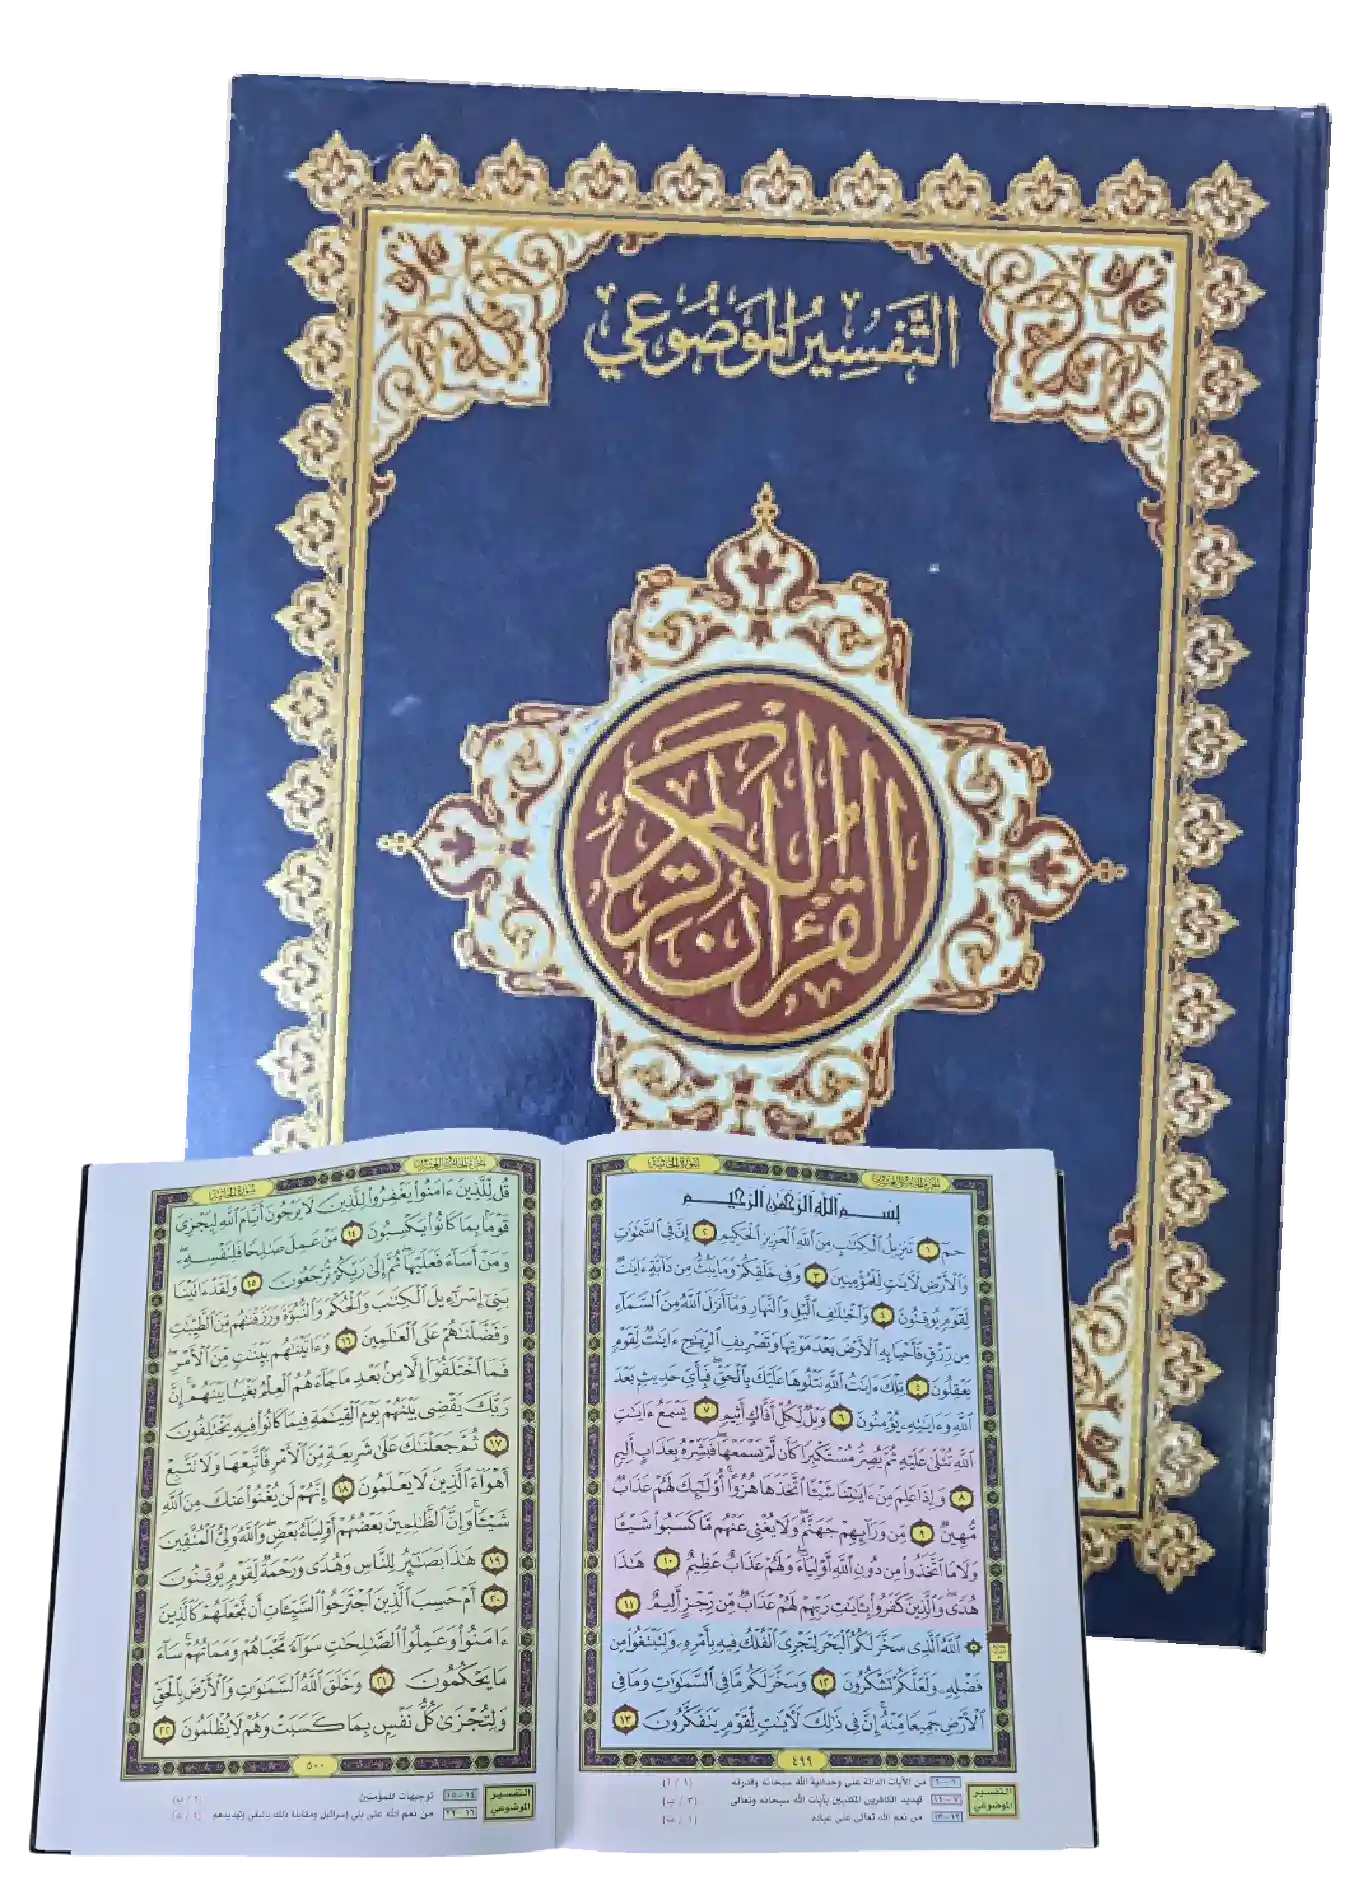 التَّفْسِيرُ المَوْضُوعِي
القرآن الكريم
سورة الجاثية
بِسْمِ اللَّهِ الرَّحْمَٰنِ الرَّحِيمِ
حمٓ ١ تَنزِيلُ ٱلْكِتَٰبِ مِنَ ٱللَّهِ ٱلْعَزِيزِ ٱلْحَكِيمِ ٢ إِنَّ فِى ٱلسَّمَٰوَٰتِ
وَٱلْأَرْضِ لَءَايَٰتٍ لِّلْمُؤْمِنِينَ ٣ وَفِى خَلْقِكُمْ وَمَا يَبُثُّ مِن دَآبَّةٍ ءَايَٰتٌ
لِّقَوْمٍ يُوقِنُونَ ٤ وَٱخْتِلَٰفِ ٱلَّيْلِ وَٱلنَّهَارِ وَمَآ أَنزَلَ ٱللَّهُ مِنَ ٱلسَّمَآءِ
مِن رِّزْقٍ فَأَحْيَا بِهِ ٱلْأَرْضَ بَعْدَ مَوْتِهَا وَتَصْرِيفِ ٱلرِّيَٰحِ ءَايَٰتٌ لِّقَوْمٍ
يَعْقِلُونَ ٥ تِلْكَ ءَايَٰتُ ٱللَّهِ نَتْلُوهَا عَلَيْكَ بِٱلْحَقِّ فَبِأَىِّ حَدِيثٍۭ بَعْدَ
ٱللَّهِ وَءَايَٰتِهِۦ يُؤْمِنُونَ ٦ وَيْلٌ لِّكُلِّ أَفَّاكٍ أَثِيمٍ ٧ يَسْمَعُ ءَايَٰتِ
ٱللَّهِ تُتْلَىٰ عَلَيْهِ ثُمَّ يُصِرُّ مُسْتَكْبِرًا كَأَن لَّمْ يَسْمَعْهَا فَبَشِّرْهُ بِعَذَابٍ أَلِيمٍ
٨ وَإِذَا عَلِمَ مِنْ ءَايَٰتِنَا شَيْـًٔا ٱتَّخَذَهَا هُزُوًا أُو۟لَٰٓئِكَ لَهُمْ عَذَابٌ
مُّهِينٌ ٩ مِّن وَرَآئِهِمْ جَهَنَّمُ وَلَا يُغْنِى عَنْهُم مَّا كَسَبُوا۟ شَيْـًٔا
وَلَا مَا ٱتَّخَذُوا۟ مِن دُونِ ٱللَّهِ أَوْلِيَآءَ وَلَهُمْ عَذَابٌ عَظِيمٌ ١٠ هَٰذَا
هُدًى وَٱلَّذِينَ كَفَرُوا۟ بِـَٔايَٰتِ رَبِّهِمْ لَهُمْ عَذَابٌ مِّن رِّجْزٍ أَلِيمٌ ١١
ٱللَّهُ ٱلَّذِى سَخَّرَ لَكُمُ ٱلْبَحْرَ لِتَجْرِىَ ٱلْفُلْكُ فِيهِ بِأَمْرِهِۦ وَلِتَبْتَغُوا۟ مِن
فَضْلِهِۦ وَلَعَلَّكُمْ تَشْكُرُونَ ١٢ وَسَخَّرَ لَكُم مَّا فِى ٱلسَّمَٰوَٰتِ وَمَا فِى
ٱلْأَرْضِ جَمِيعًا مِّنْهُ إِنَّ فِى ذَٰلِكَ لَءَايَٰتٍ لِّقَوْمٍ يَتَفَكَّرُونَ ١٣
٤٩٩
التفسير الموضوعي
١-٦ من الآيات الدالة على وحدانية الله سبحانه وقدرته
٧-١١ تهديد الكافرين المكذبين بآيات الله سبحانه وتعالى
١٢-١٣ من نعم الله تعالى على عباده
سورة الجاثية
قُل لِّلَّذِينَ ءَامَنُوا۟ يَغْفِرُوا۟ لِلَّذِينَ لَا يَرْجُونَ أَيَّامَ ٱللَّهِ لِيَجْزِىَ
قَوْمًۢا بِمَا كَانُوا۟ يَكْسِبُونَ ١٤ مَنْ عَمِلَ صَٰلِحًا فَلِنَفْسِهِۦ
وَمَنْ أَسَآءَ فَعَلَيْهَا ثُمَّ إِلَىٰ رَبِّكُمْ تُرْجَعُونَ ١٥ وَلَقَدْ ءَاتَيْنَا
بَنِىٓ إِسْرَٰٓءِيلَ ٱلْكِتَٰبَ وَٱلْحُكْمَ وَٱلنُّبُوَّةَ وَرَزَقْنَٰهُم مِّنَ ٱلطَّيِّبَٰتِ
وَفَضَّلْنَٰهُمْ عَلَى ٱلْعَٰلَمِينَ ١٦ وَءَاتَيْنَٰهُم بَيِّنَٰتٍ مِّنَ ٱلْأَمْرِ
فَمَا ٱخْتَلَفُوٓا۟ إِلَّا مِنۢ بَعْدِ مَا جَآءَهُمُ ٱلْعِلْمُ بَغْيًۢا بَيْنَهُمْ إِنَّ
رَبَّكَ يَقْضِى بَيْنَهُمْ يَوْمَ ٱلْقِيَٰمَةِ فِيمَا كَانُوا۟ فِيهِ يَخْتَلِفُونَ
١٧ ثُمَّ جَعَلْنَٰكَ عَلَىٰ شَرِيعَةٍ مِّنَ ٱلْأَمْرِ فَٱتَّبِعْهَا وَلَا تَتَّبِعْ
أَهْوَآءَ ٱلَّذِينَ لَا يَعْلَمُونَ ١٨ إِنَّهُمْ لَن يُغْنُوا۟ عَنكَ مِنَ ٱللَّهِ
شَيْـًٔا وَإِنَّ ٱلظَّٰلِمِينَ بَعْضُهُمْ أَوْلِيَآءُ بَعْضٍ وَٱللَّهُ وَلِىُّ ٱلْمُتَّقِينَ
١٩ هَٰذَا بَصَٰٓئِرُ لِلنَّاسِ وَهُدًى وَرَحْمَةٌ لِّقَوْمٍ يُوقِنُونَ
٢٠ أَمْ حَسِبَ ٱلَّذِينَ ٱجْتَرَحُوا۟ ٱلسَّيِّـَٔاتِ أَن نَّجْعَلَهُمْ كَٱلَّذِينَ
ءَامَنُوا۟ وَعَمِلُوا۟ ٱلصَّٰلِحَٰتِ سَوَآءً مَّحْيَاهُمْ وَمَمَاتُهُمْ سَآءَ
مَا يَحْكُمُونَ ٢١ وَخَلَقَ ٱللَّهُ ٱلسَّمَٰوَٰتِ وَٱلْأَرْضَ بِٱلْحَقِّ
وَلِتُجْزَىٰ كُلُّ نَفْسٍۭ بِمَا كَسَبَتْ وَهُمْ لَا يُظْلَمُونَ ٢٢
٥٠٠
التفسير الموضوعي
١٤-١٥ توجيهات للمؤمنين
١٦-٢٢ من نعم الله على بني إسرائيل ومقابلة ذلك بالبغي وتهديدهم